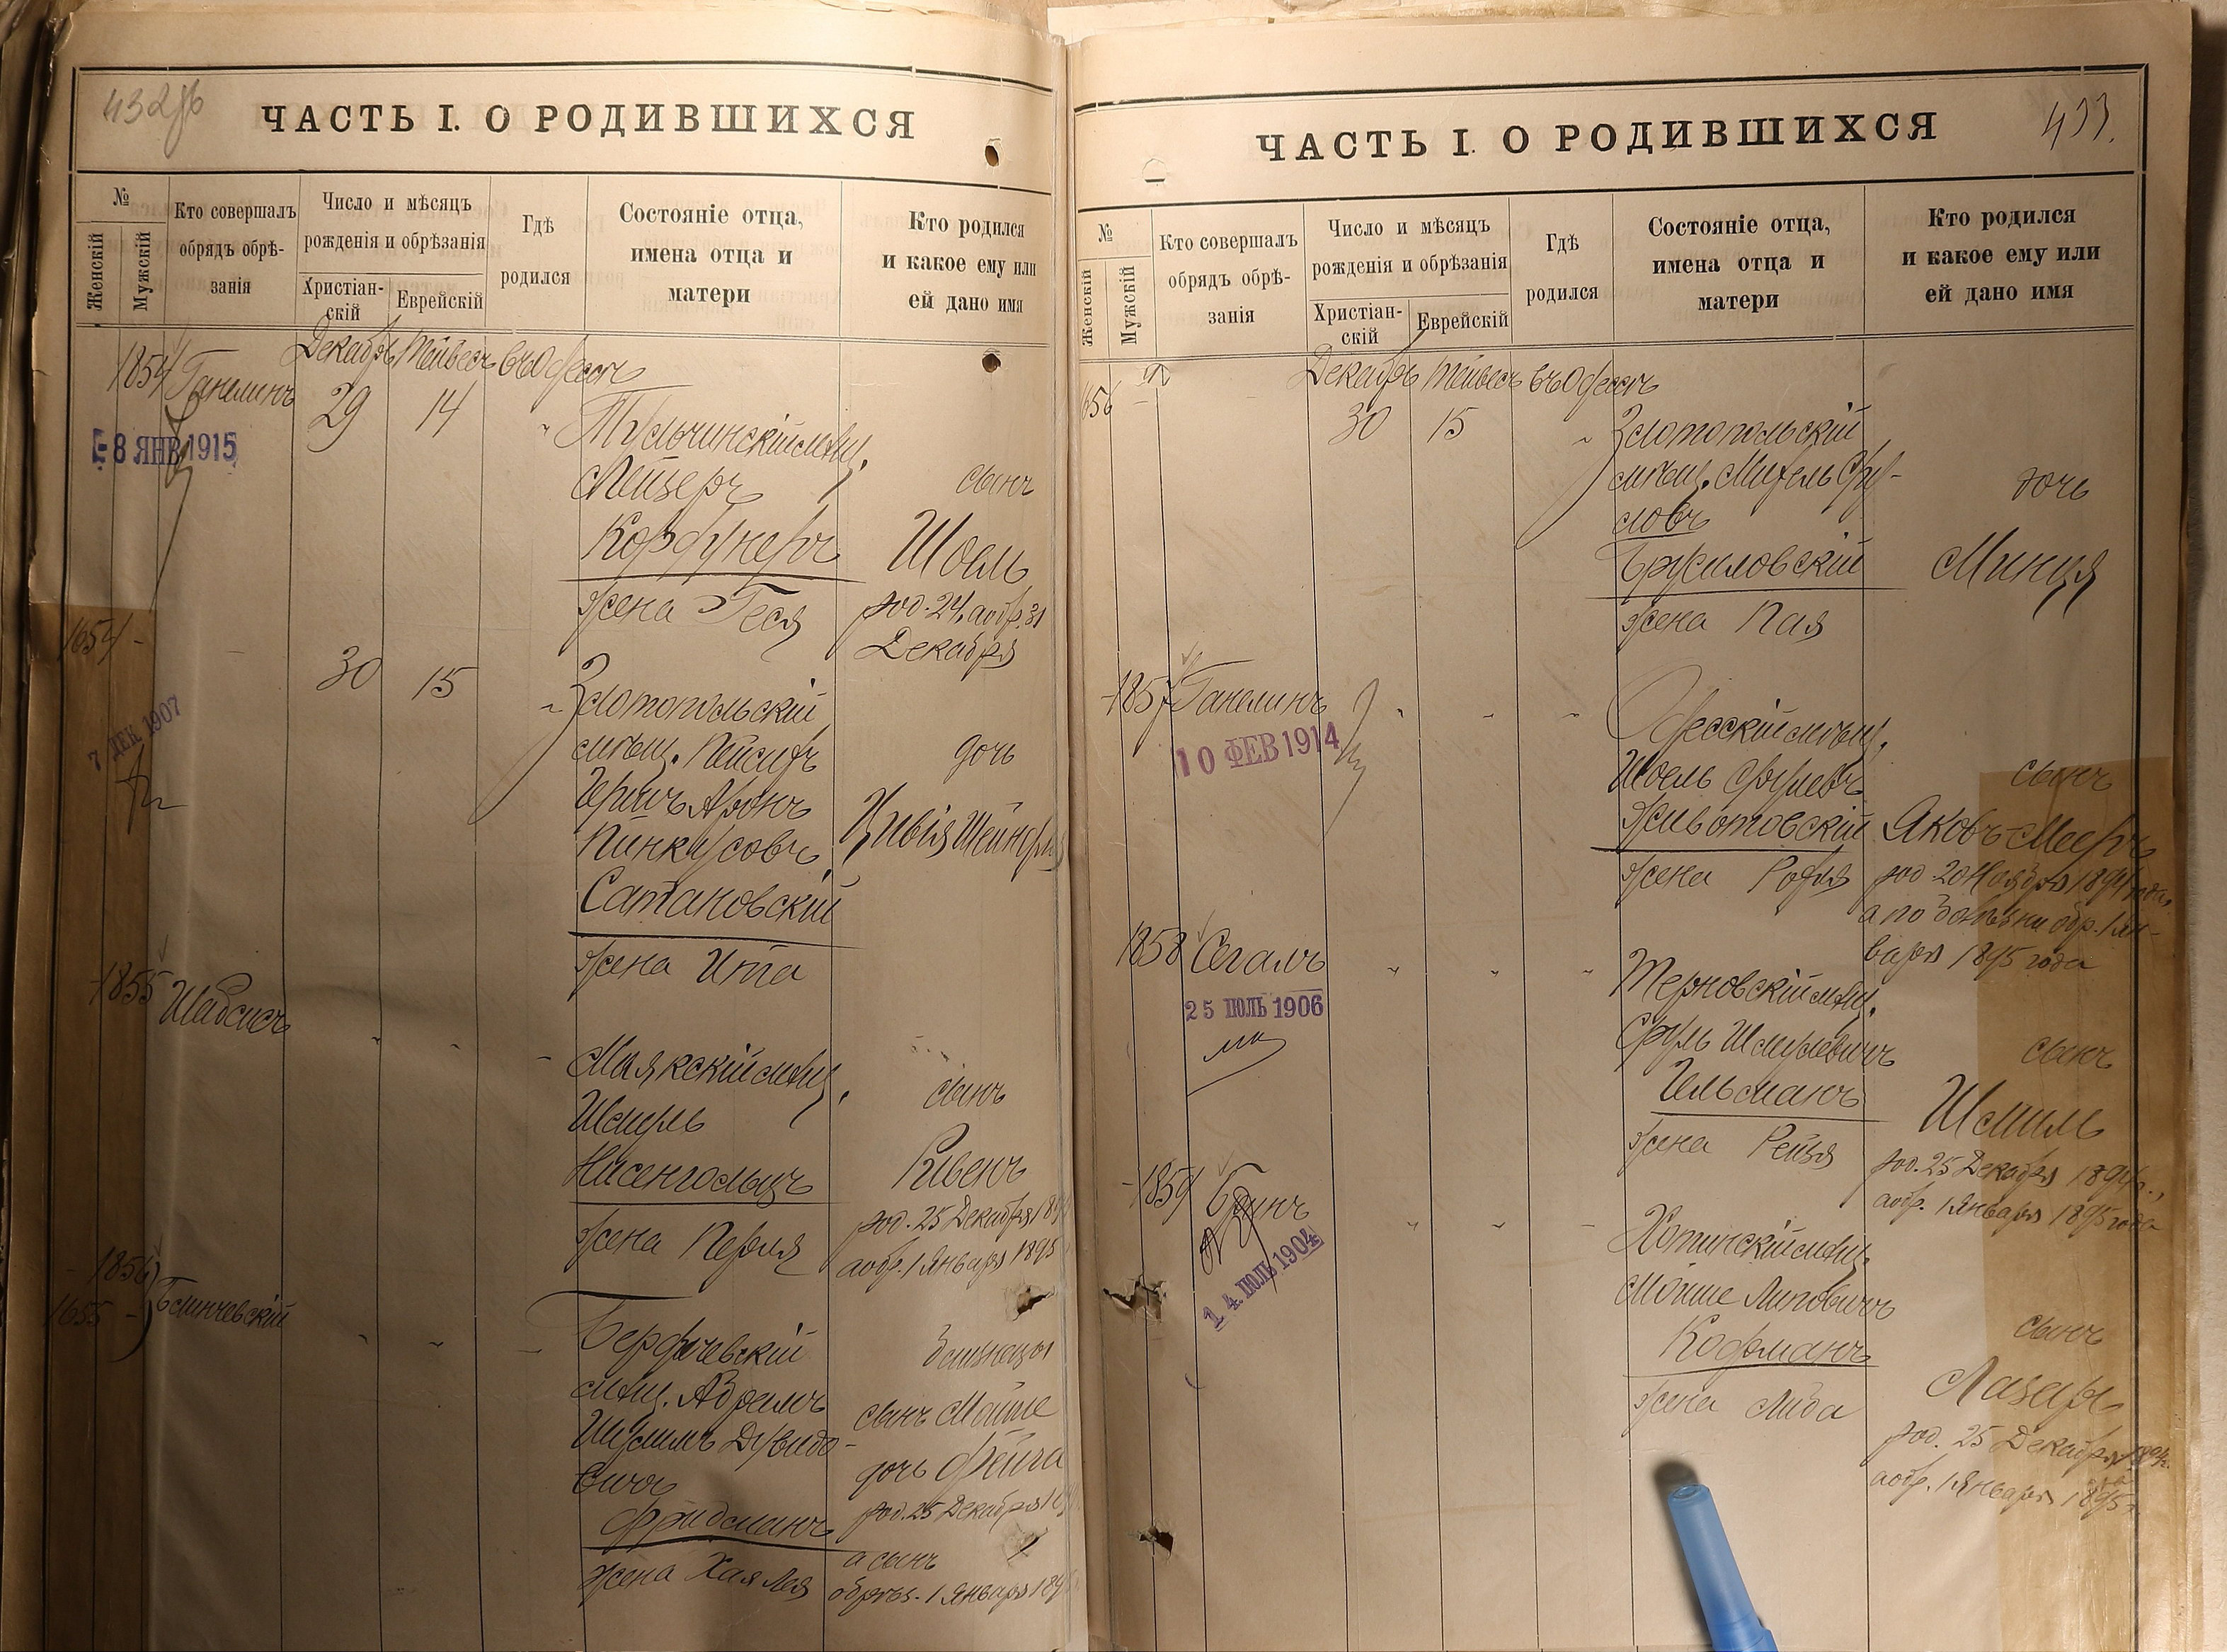 432об
ЧАСТЬ I. О РОДИВШИХСЯ
№
Женскій
Мужскій
Кто совершалъ
обрядъ обрѣ-
занія
Число и мѣсяцъ
рожденія и обрѣзанія
Христіан-
скій
Еврейскій
Гдѣ
родился
Состояніе отца,
имена отца и
матери
Кто родился
и какое ему или
ей дано имя
Декабрь Тейвесъ въ Одессѣ
1854 Ганелинъ 29 14 "
8 ЯНВ 1915
Тульчинскій мѣщ.
Лейзеръ
Кордунеръ
жена Геся
сынъ
Шоель
род. 24, а обр. 31
Декабря
1654 - 30 15 "
7 ДЕК 1907
Златопольскій
мѣщ. Пейсахъ
Гершъ Аронъ
Пинкусовъ
Сатановскій
жена Ита
дочь
Цивія Шейндля
1855 Шабсисъ " " "
Маякскій мѣщ.
Шмуль
Нисенгольцъ
жена Перля
сынъ
Рівенъ
род. 25 Декабря 189
а обр. 1 Января 1895
1856
1655 -
Блинчевскій " " "
Бердичевскій
мѣщ. Абрамъ
Шулимъ Дувидо-
вичъ
Фридманъ
жена Хая Лея
близнецы
сынъ Мойше
дочь Фейга
род. 25 Декабря 18
а сынъ
обрѣз. 1 Января 189
433.
ЧАСТЬ I. О РОДИВШИХСЯ
№
Женскій
Мужскій
Кто совершалъ
обрядъ обрѣ-
занія
Число и мѣсяцъ
рожденія и обрѣзанія
Христіан-
скій
Еврейскій
Гдѣ
родился
Состояніе отца,
имена отца и
матери
Кто родился
и какое ему или
ей дано имя
Декабрь Тейвесъ въ Одессѣ
1656 - 30 15 "
Златопольскій
мѣщ. Михель Сру-
ловъ
Брусиловскій
жена Пая
дочь
Минця
1857 Ганелинъ " " "
10 ФЕВ 1914
Одесскій мѣщ.
Шоель Срулевъ
Животовскій
жена Рохля
сынъ
Яковъ Мееръ
род 20 Ноября 1894 года,
а по болѣзни обр. 1 Ян-
варя 1895 года
1858 Сегалъ " " "
25 ІЮЛЬ 1906
Терновскій мѣщ.
Сруль Шмулевичъ
Гельманъ
жена Рейзя
сынъ
Шмиль
род. 25 Декабря 1894 г.,
а обр. 1 Января 1895 года
1859 Бринъ " " "
14 ІЮЛЬ 1904
Хотинскій мѣщ.
Мойше Липовичъ
Кофманъ
жена Либа
сынъ
Лазарь
род. 25 Декабря 1894 г.
а обр. 1 Января 1895 г.